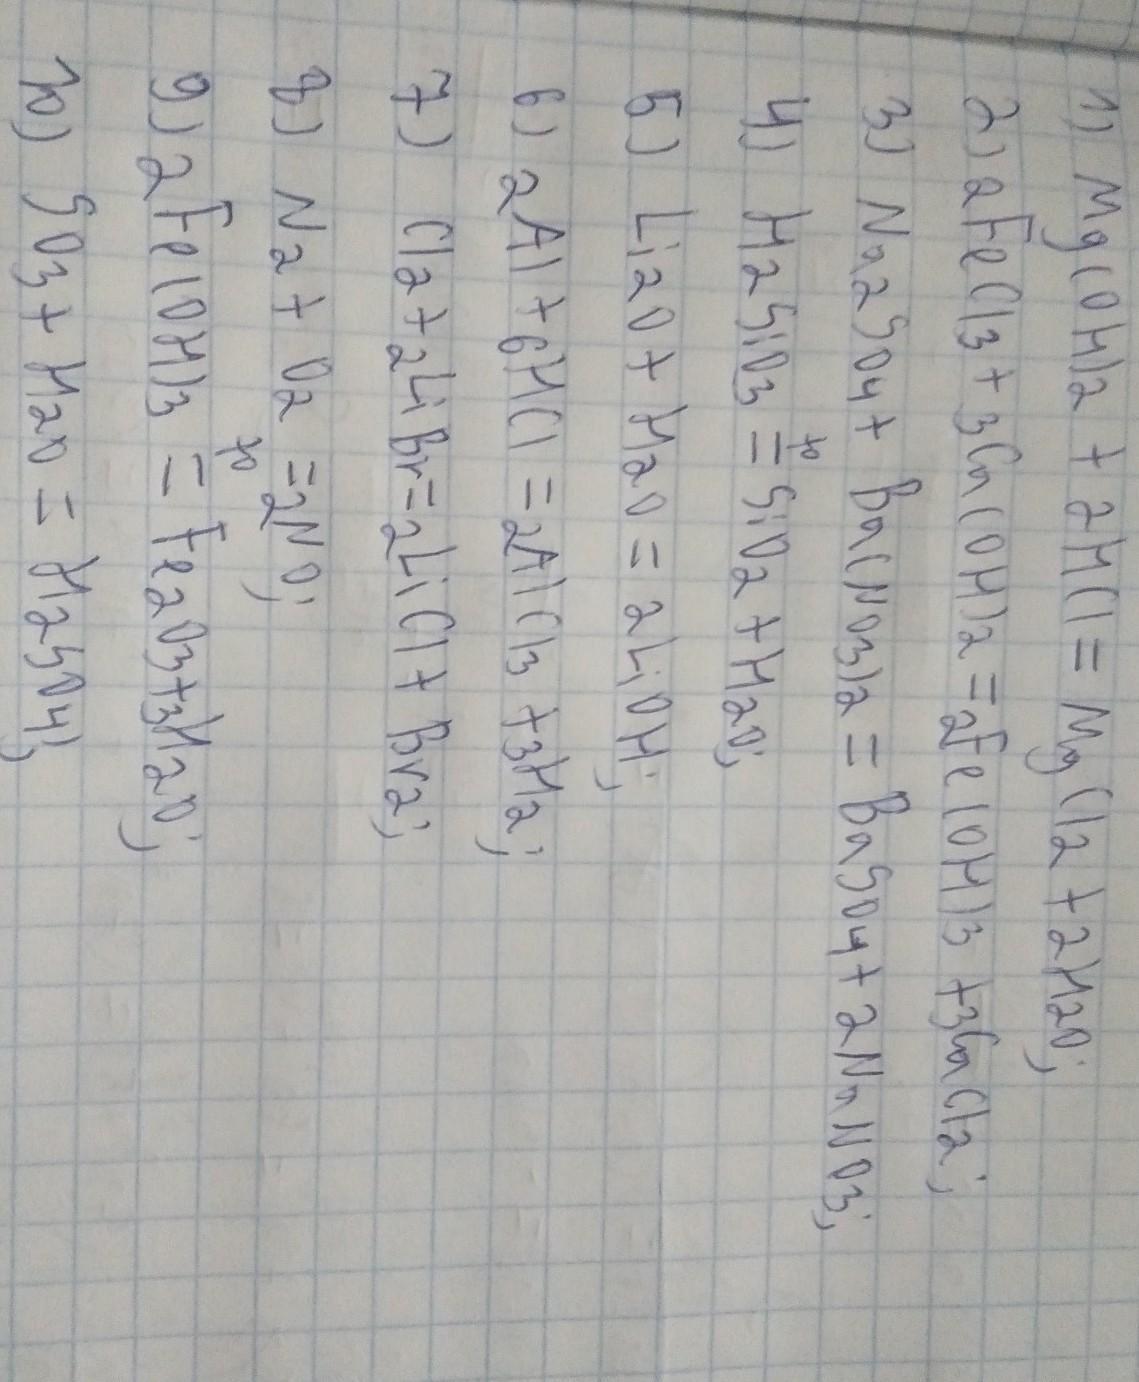 1) Mg(OH)2 + 2HCl = MgCl2 + 2H2O;
2) 2FeCl3 + 3Ca(OH)2 = 2Fe(OH)3 + 3CaCl2;
3) Na2SO4 + Ba(NO3)2 = BaSO4 + 2NaNO3;
4) H2SiO3 =t° SiO2 + H2O;
5) Li2O + H2O = 2LiOH;
6) 2Al + 6HCl = 2AlCl3 + 3H2;
7) Cl2 + 2LiBr = 2LiCl + Br2;
8) N2 + O2 = 2NO;
9) 2Fe(OH)3 =t° Fe2O3 + 3H2O;
10) SO3 + H2O = H2SO4;